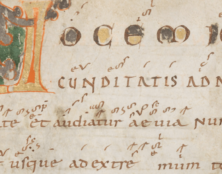 OCEM
CUNDITATIS ADN
ate et audiatur aeuia Nun
usque ad extre mum te